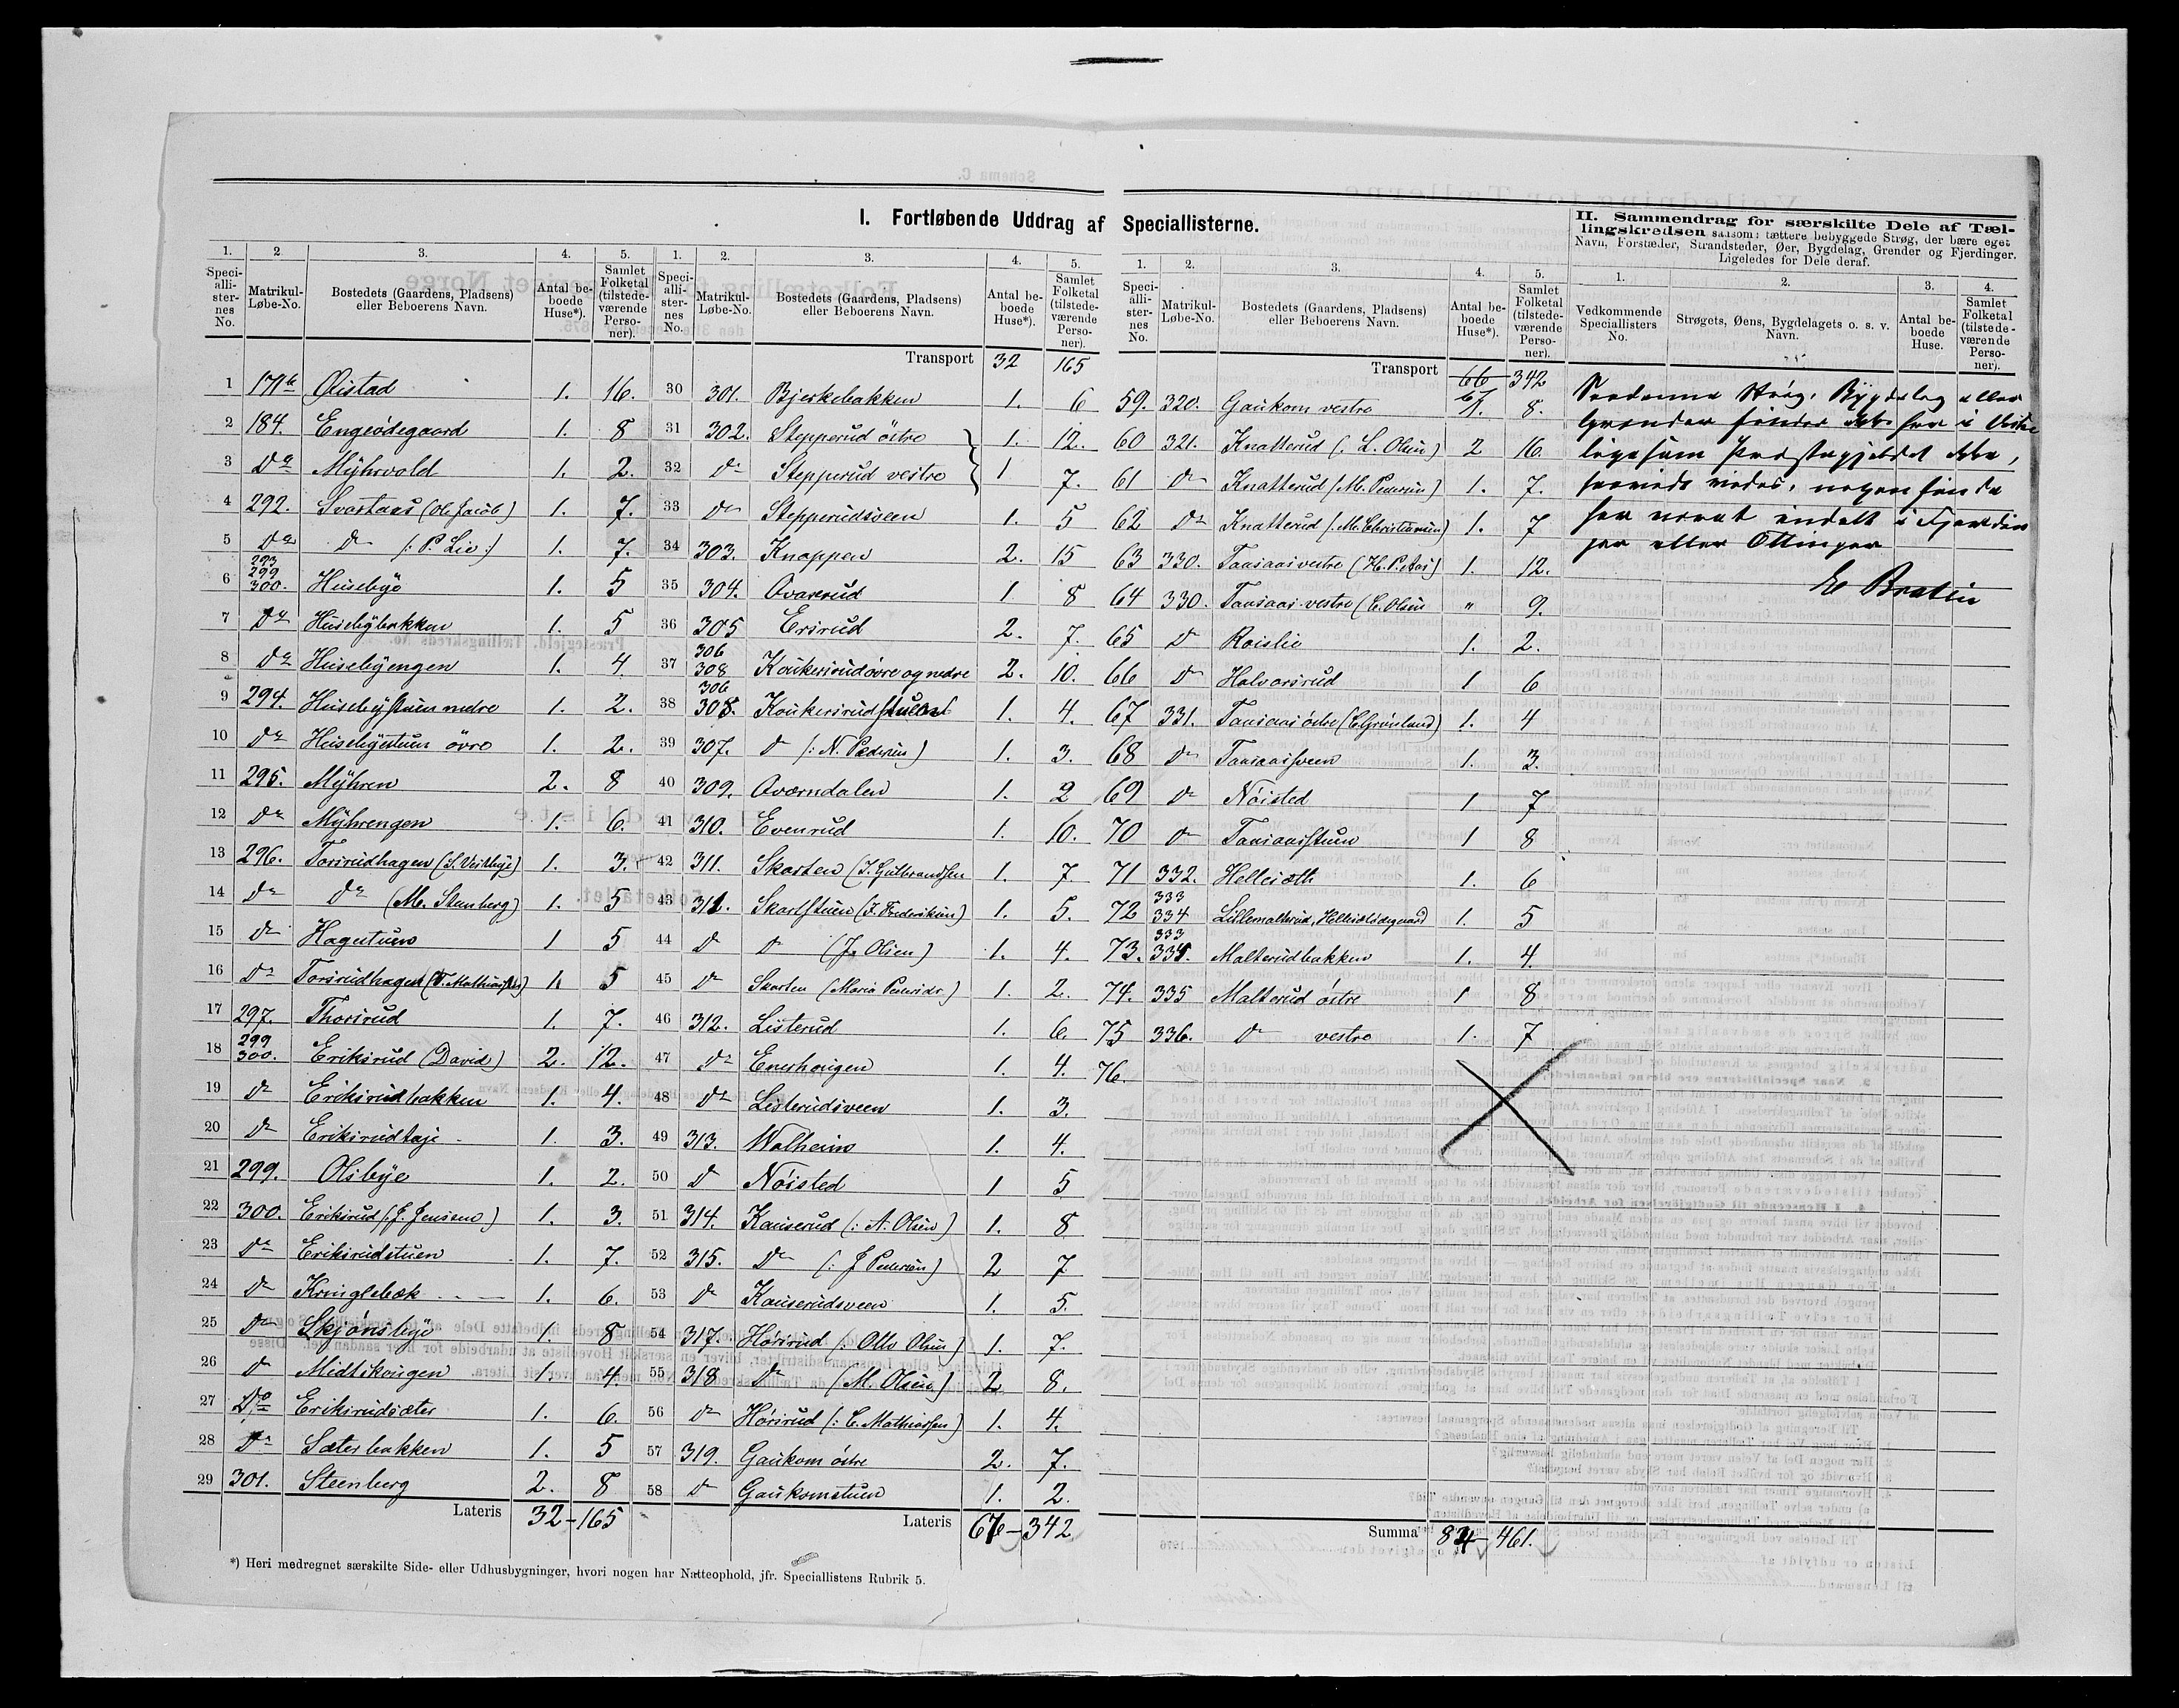 I. Fortløbende Uddrag af Speciallisterne.
1. 2. 3. 4. 5.
Speciallisternes No. Matrikul-Løbe-No. Bostedets (Gaardens, Pladsens) eller Beboerens Navn. Antal beboede Huse*). Samlet Folketal (tilstedeværende Personer).
1 171b Ølstad 1. 16.
2 184. Engeödegaard 1. 8
3 Do Myhrvold 1. 2.
4 292. Svartaas (Ole Jacob) 1. 7.
5 Do Do (: P. Lie :) 1. 7.
6 293 299 300. Husebye 1. 5
7 Do Husebybakken 1. 5
8 Do Husebyengen 1. 4.
9 294. Husebystuen nedre 1. 2.
10 Do Husebystuen övre 1. 2.
11 295. Myhren 2. 8
12 Do Myhrengen 1. 6.
13 296. Torsrudhagen (S. Vestbye) 1. 3.
14 Do Do (M. Stenberg) 1. 5
15 Do Hagestuen 1 5
16 Do Torsrudhagen (T. Mathiassen) 1. 5
17 297. Thorsrud 1. 7.
18 299 300. Eriksrud (David) 2. 12.
19 Do Eriksrudbakken 1. 4.
20 Do Eriksrudhaje 1. 3.
21 299. Olsbye 1. 2.
22 300. Eriksrud (: J. Jensen) 1. 3.
23 Do Eriksrudstuen 1. 7.
24 Do Kringlebæk 1. 6.
25 Do Skjönsbye 1. 8
26 Do Midtskougen 1. 4.
27 Do Eriksrudsæter 1. 6.
28 Do Sæterbakken 1. 5
29 301. Steenberg 2. 8
Lateris 32 - 165
*) Heri medregnet særskilte Side- eller Udhusbygninger, hvori nogen har Natteophold, jfr. Speciallistens Rubrik 5.
1. 2. 3. 4. 5.
Speciallisternes No. Matrikul-Løbe-No. Bostedets (Gaardens, Pladsens) eller Beboerens Navn. Antal beboede Huse*). Samlet Folketal (tilstedeværende Personer).
Transport 32 165
30 301. Bjerkebakken 1. 6
31 302. Stepperud östre 1. 12.
32 Do Stepperud vestre 1 7.
33 Do Stepperudsveen 1. 5
34 303. Knappen 2. 15
35 304. Ovarrud 1 8
36 305 Ersrud 2. 7.
37 306 308 Koukersrud övre og nedre 2. 10.
38 306 308. Koukersrudstuen 1. 4.
39 307. Do (: N. Pedersen) 1. 3.
40 309. Qværndalen 1. 2
41 310. Evenrud 1. 10.
42 311. Skarten (J. Gulbrandsen 1. 7
43 311. Skartstuen (J. Frederiksen) 1. 5.
44 Do Do (J. Olsen) 1. 4.
45 Do Skarten (Maria Pedersdr.) 1. 2.
46 312. Listerud 1. 6.
47 Do Enerhougen 1. 4.
48 Do Listerudsveen 1. 3.
49 313. Walheim 1. 4.
50 Do Nöisted 1 5
51 314. Kauserud (: A. Olsen) 1. 8
52 315. Do (: J Pedersen) 2 7
53 Do Kauserudsveen 1. 5.
54 317. Hörsrud (: Otto Olsen) 1. 7.
55 318 Do (M. Olsen) 2 8.
56 Do Hörsrud (: C. Mathiassen) 1. 4.
57 319. Gaukom östre 2. 7.
58 Do Gaukomstuen 1. 2.
Lateris 67 - 342
1. 2. 3. 4. 5.
Speciallisternes No. Matrikul-Løbe-No. Bostedets (Gaardens, Pladsens) eller Beboerens Navn. Antal beboede Huse*). Samlet Folketal (tilstedeværende Personer).
Transport 66 67 342
59. 320. Gaukom vestre 1. 8.
60 321. Knatterud (: L. Olsen) 2 16.
61 Do Knatterud (: M. Pedersen) 1. 7.
62 Do Knatterud (: M. Christiansen) 1. 7
63 330. Tausaas vestre (H. P. Aas) 1. 12.
64 330. Tausaas vestre (C. Olsen " 9.
65 Do Roislie 1. 2.
66 Do Halvorsrud 1 6
67 331. Tausaas östre (E. Grönlund) 1. 4
68 Do Tausaassveen 1. 3.
69 Do Nöisted 1 7
70 Do Tausaasstuen 1 8
71 332. Hellesæth 1. 6
72 333 334 Lillemalterud, Hellesætödegaard 1. 5
73. 333 334. Malterudbakken 1. 4.
74. 335 Malterud östre 1 8
75 336. Do vestre 1. 7
76.
Summa 84 - 461.
II. Sammendrag for særskilte Dele af Tællingskredsen saasom: tættere bebyggede Strøg, der bære eget Navn, Forstæder, Strandsteder, Øer, Bygdelag, Grender og Fjerdinger. Ligeledes for Dele deraf.
1. 2. 3. 4.
Vedkommende Speciallisters No. Strøgets, Øens, Bygdelagets o. s. v. Navn. Antal beboede Huse. Samlet Folketal (tilstedeværende Personer).
Saadanne Strøg, Bygdelag eller
Grender findes ikke her i
ligesom Præstegjeldet ikke,
saavidt vides, nogensinde
har været indelt i Fjerdin
ger eller Ottinger
E Bratlie